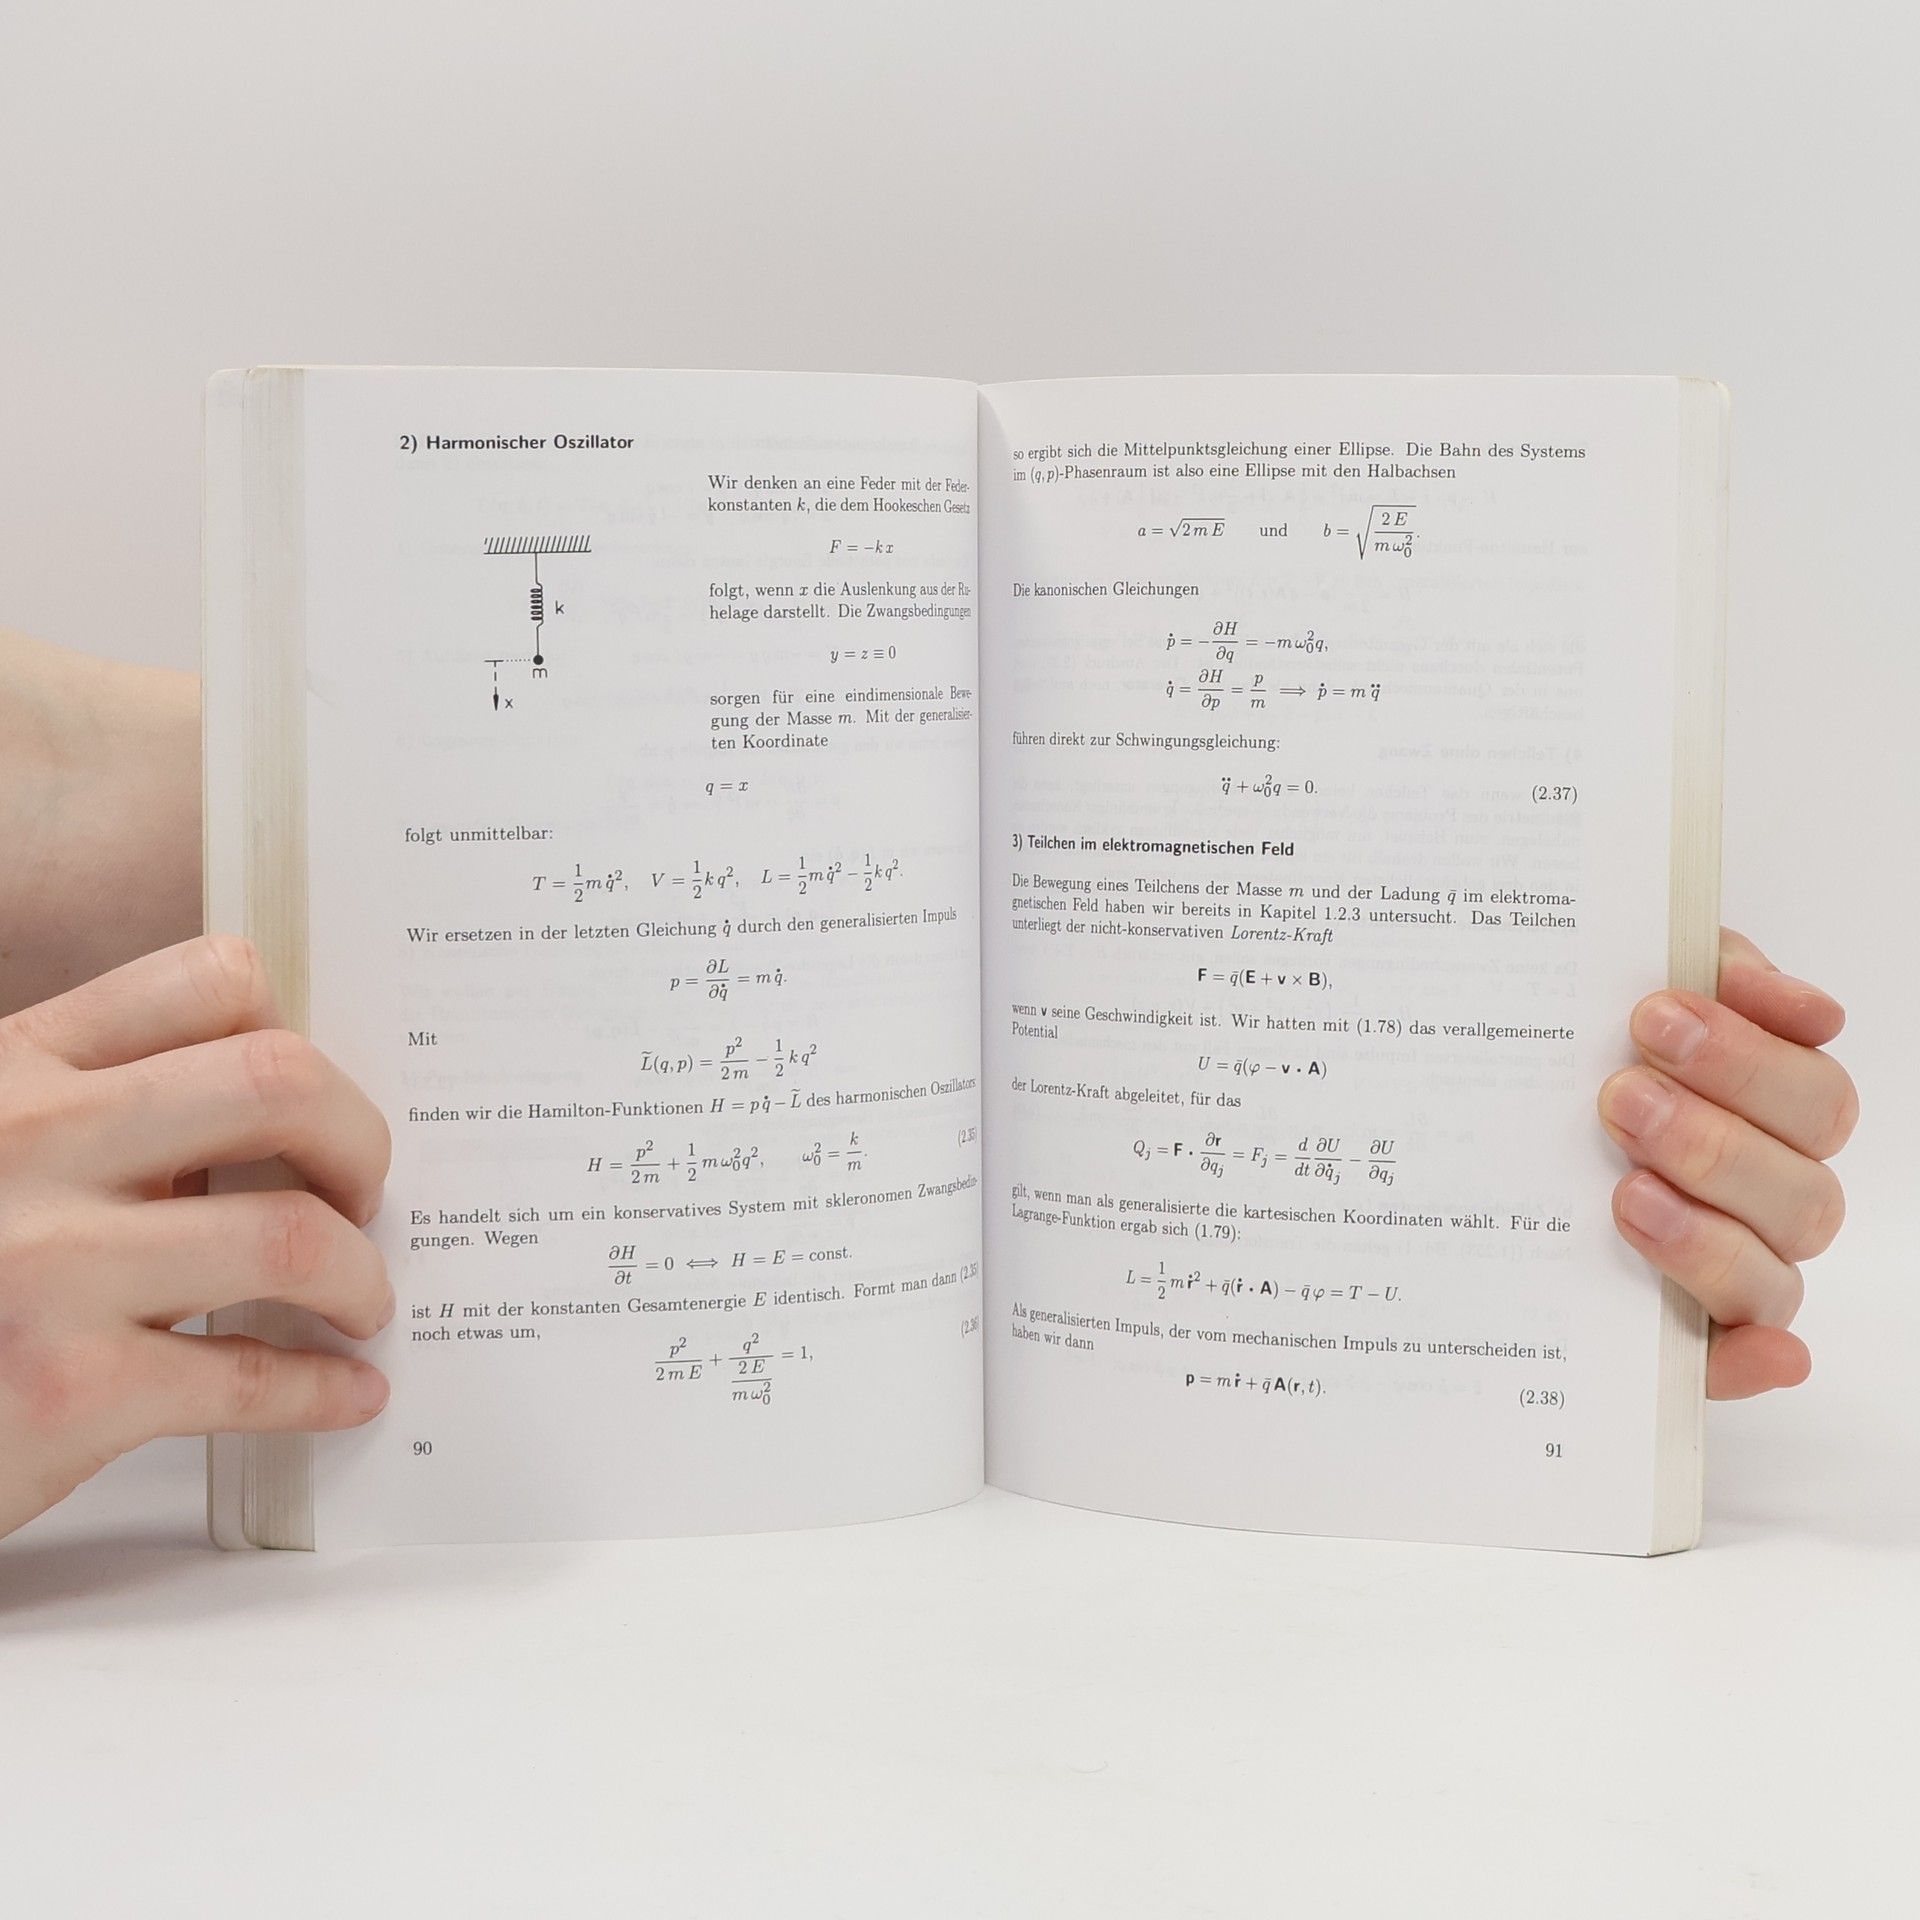 2) Harmonischer Oszillator
Wir denken an eine Feder mit der Feder-
konstanten k, die dem Hookeschen Gesetz
F = −k x
folgt, wenn x die Auslenkung aus der Ru-
helage darstellt. Die Zwangsbedingungen
y = z ≡ 0
sorgen für eine eindimensionale Bewe-
gung der Masse m. Mit der generalisier-
ten Koordinate
q = x
k
m
x
folgt unmittelbar:
T = 1/2 m q̇², V = 1/2 k q², L = 1/2 m q̇² − 1/2 k q².
Wir ersetzen in der letzten Gleichung q̇ durch den generalisierten Impuls
p = ∂L/∂q̇ = m q̇.
Mit
L̃(q, p) = p²/(2 m) − 1/2 k q²
finden wir die Hamilton-Funktionen H = p q̇ − L̃ des harmonischen Oszillators
H = p²/(2 m) + 1/2 m ω₀² q², ω₀² = k/m. (2.35)
Es handelt sich um ein konservatives System mit skleronomen Zwangsbedin-
gungen. Wegen
∂H/∂t = 0 ⟺ H = E = const.
ist H mit der konstanten Gesamtenergie E identisch. Formt man dann (2.35)
noch etwas um,
p²/(2 m E) + q²/(2 E/(m ω₀²)) = 1, (2.36)
90
so ergibt sich die Mittelpunktsgleichung einer Ellipse. Die Bahn des Systems
im (q, p)-Phasenraum ist also eine Ellipse mit den Halbachsen
a = √(2 m E) und b = √(2 E/(m ω₀²)).
Die kanonischen Gleichungen
ṗ = −∂H/∂q = −m ω₀² q,
q̇ = ∂H/∂p = p/m ⟹ ṗ = m q̈
führen direkt zur Schwingungsgleichung:
q̈ + ω₀² q = 0. (2.37)
3) Teilchen im elektromagnetischen Feld
Die Bewegung eines Teilchens der Masse m und der Ladung q̄ im elektroma-
gnetischen Feld haben wir bereits in Kapitel 1.2.3 untersucht. Das Teilchen
unterliegt der nicht-konservativen Lorentz-Kraft
F = q̄(E + v × B),
wenn v seine Geschwindigkeit ist. Wir hatten mit (1.78) das verallgemeinerte
Potential
U = q̄(φ − v · A)
der Lorentz-Kraft abgeleitet, für das
Qⱼ = F · ∂r/∂qⱼ = Fⱼ = d/dt ∂U/∂q̇ⱼ − ∂U/∂qⱼ
gilt, wenn man als generalisierte die kartesischen Koordinaten wählt. Für die
Lagrange-Funktion ergab sich (1.79):
L = 1/2 m ṙ² + q̄(ṙ · A) − q̄ φ = T − U.
Als generalisierten Impuls, der vom mechanischen Impuls zu unterscheiden ist,
haben wir dann
p = m ṙ + q̄ A(r, t). (2.38)
91